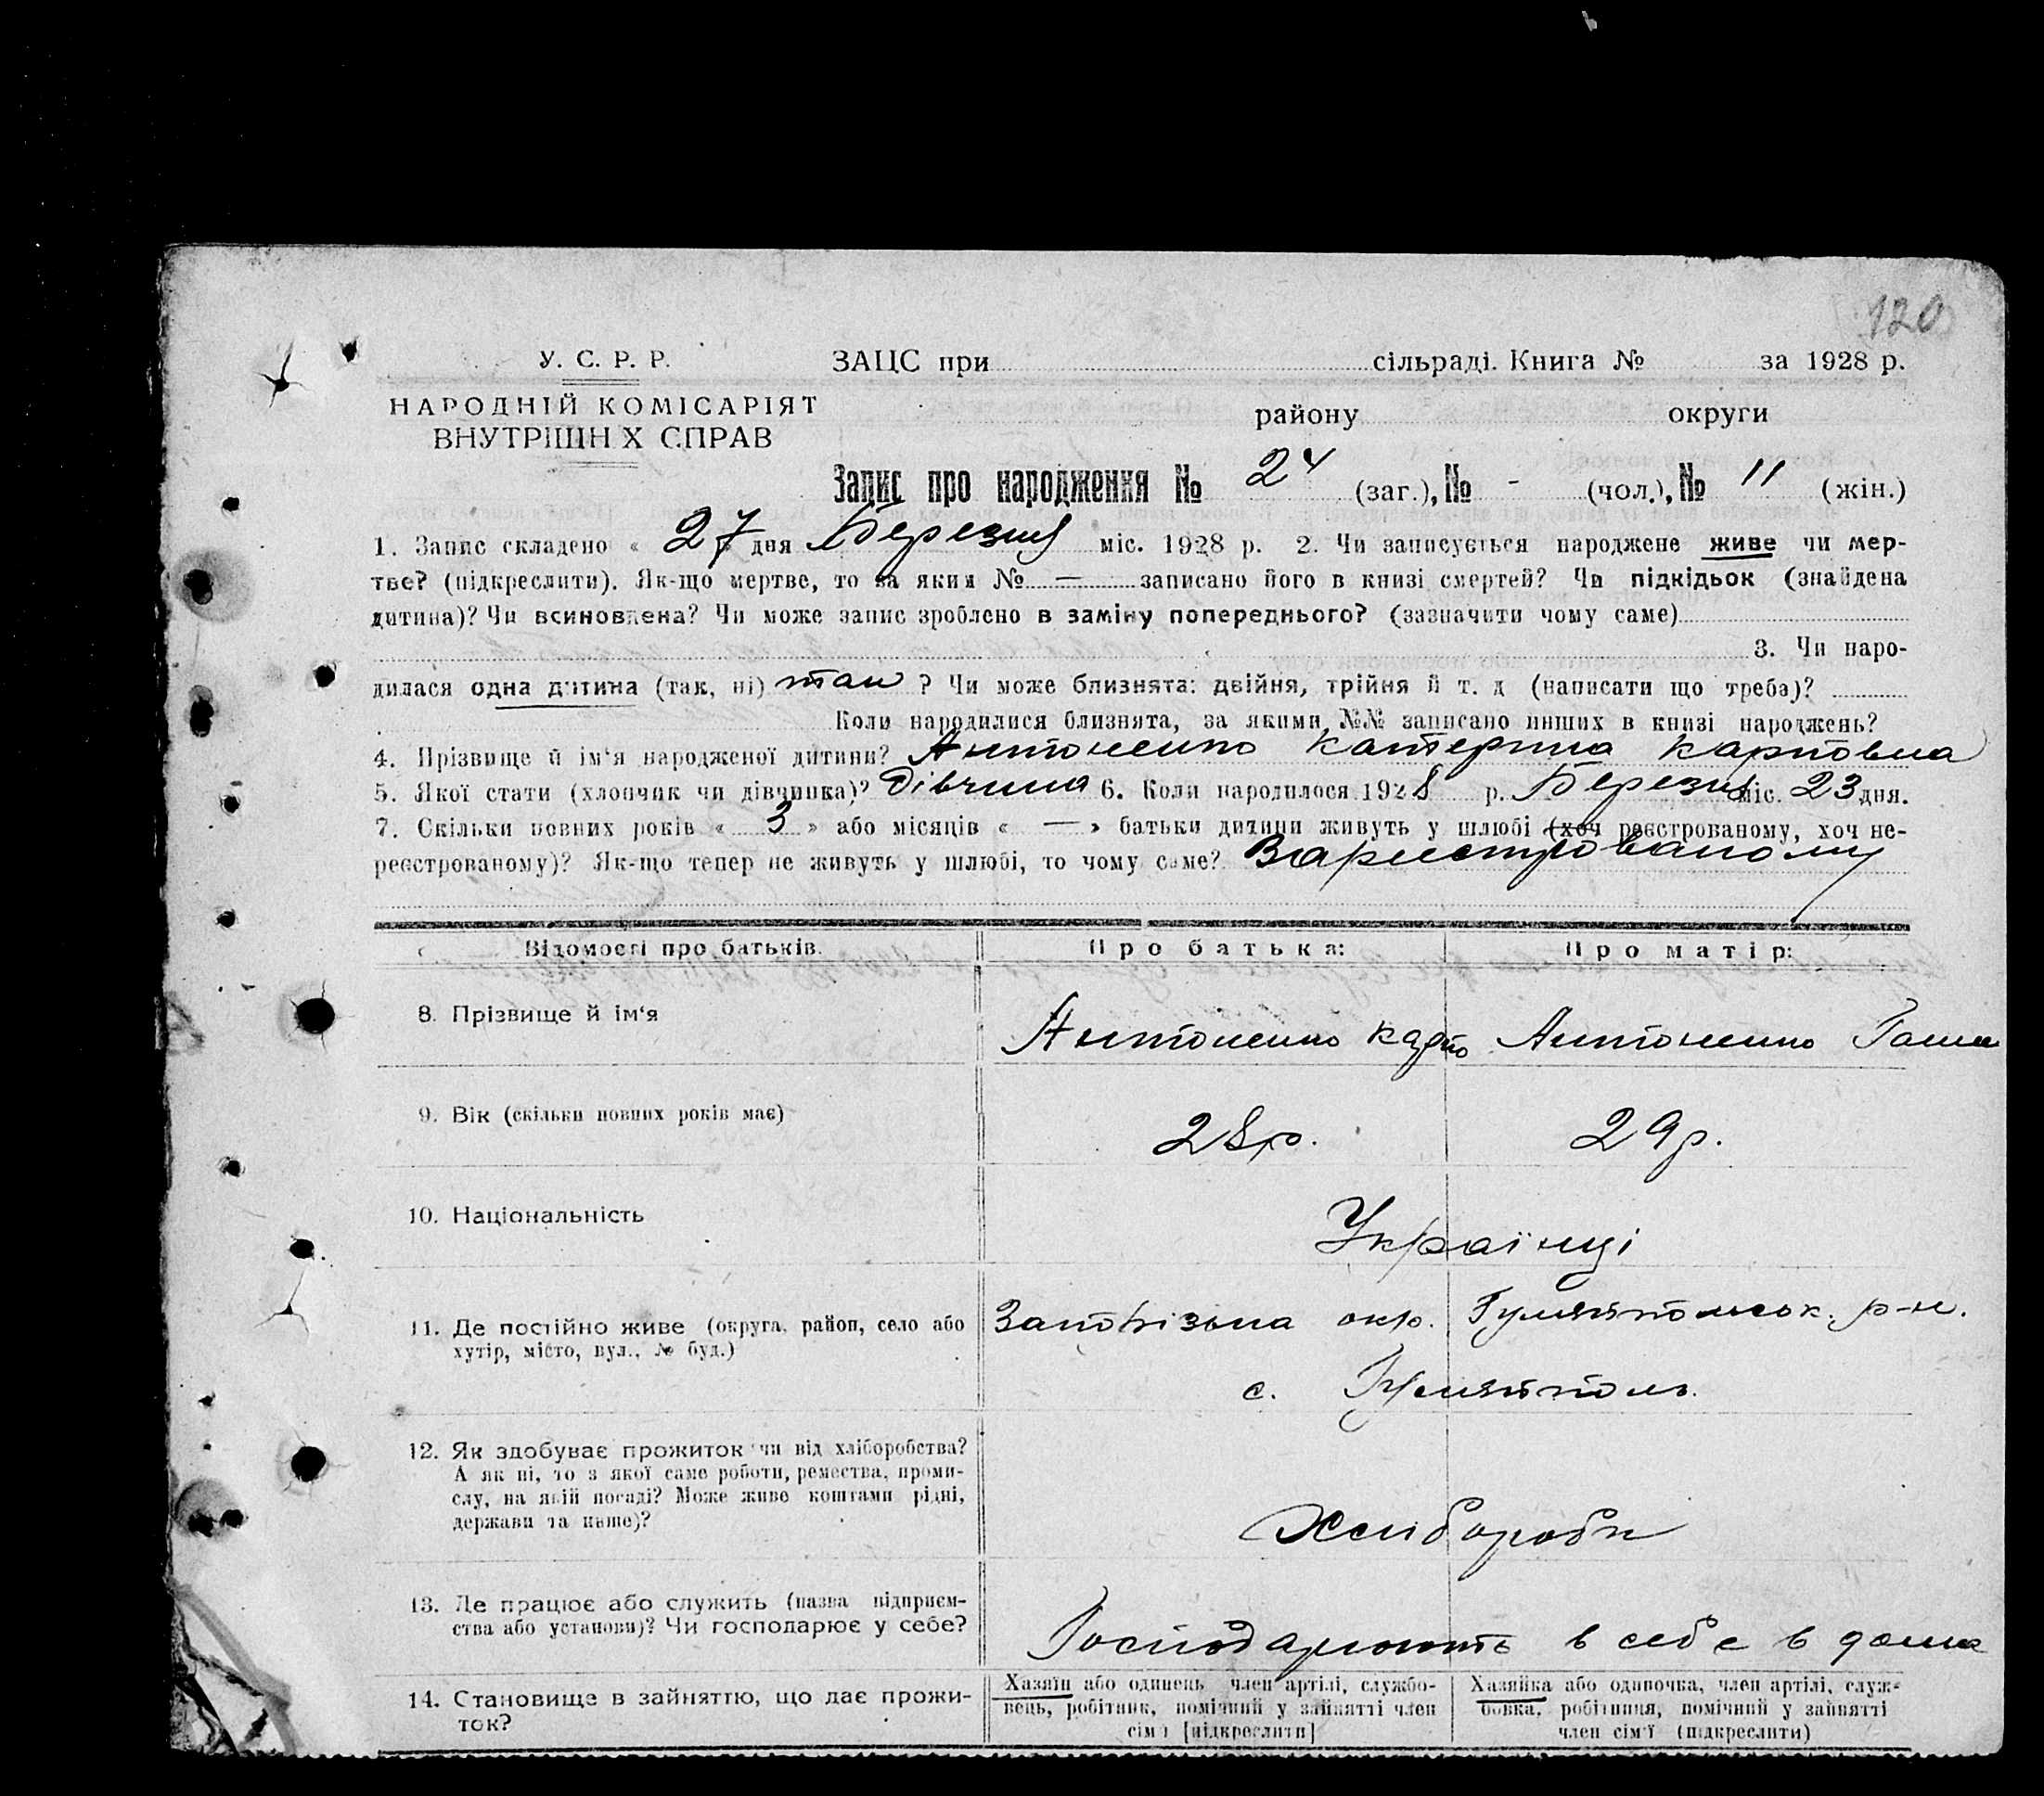 120
У. С. Р. Р.
ЗАЦС при сільраді. Книга № за 1928 р.
НАРОДНІЙ КОМІСАРІЯТ
ВНУТРІШН Х СПРАВ
району округи
Запис про народження № 24 (заг.), № - (чол.), № 11 (жін.)
1. Запис складено « 27 » дня Березня міс. 1928 р. 2. Чи записується народжене живе чи мер-
тве? (підкреслити). Як-що мертве, то за яким № — записано його в книзі смертей? Чи підкідьок (знайдена
дитина)? Чи всиновлена? Чи може запис зроблено в заміну попереднього? (зазначити чому саме)
3. Чи наро-
дилася одна дитина (так, ні) так ? Чи може близнята: двійня, трійня й т. д (написати що треба)?
Коли народилися близнята, за якими №№ записано инших в книзі народжень?
4. Прізвище й ім‘я народженої дитини? Антоненко Катерина Карповна
5. Якої стати (хлопчик чи дівчинка)? Дівчина 6. Коли народилося 1928 р. Березня міс. 23 дня.
7. Скільки повних років « 3 » або місяців « — » батьки дитини живуть у шлюбі (хоч реєстрованому, хоч не-
реєстрованому)? Як-що тепер не живуть у шлюбі, то чому саме? Заристрованому
Відомості про батьків. Про батька: Про матір:
8. Прізвище й ім‘я Антоненко Карпо Антоненко Ганна
9. Вік (скільки повних років має) 28 р. 29 р.
10. Національність Українці
11. Де постійно живе (округа, район, село або
хутір, місто, вул., № буд.)
Запорізька окр. Гуляйпольськ. р-н.
с. Гуляйполь.
12. Як здобуває прожиток чи від хліборобства?
А як ні, то з якої саме роботи, ремества, проми-
слу, на якій посаді? Може живе коштами рідні,
держави та инше)?
Хлибороби
13. Де працює або служить (назва підприєм-
ства або установи)? Чи господарює у себе?
Господарюють в себе в дома
14. Становище в зайняттю, що дає прожи-
ток?
Хазяїн або одинець, член артілі, службо-
вець, робітник, помічний у зайнятті член
сім‘ї [підкреслити]
Хазяйка або одиночка, член артілі, служ-
бовка, робітниця, помічний у зайнятті
член сім‘ї (підкреслити)